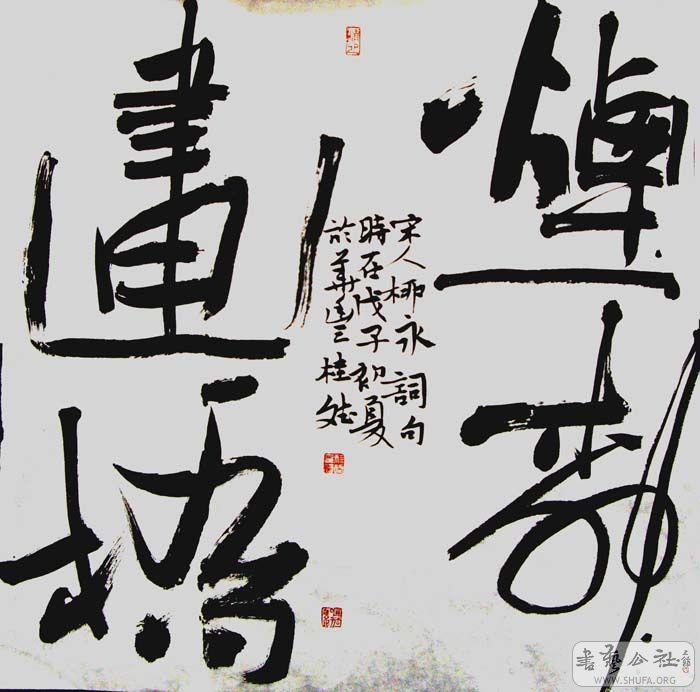 煙柳
畫橋
宋人柳永詞句
時在戊子初夏
於華
桂
書藝公社
WWW.SHUFA.ORG